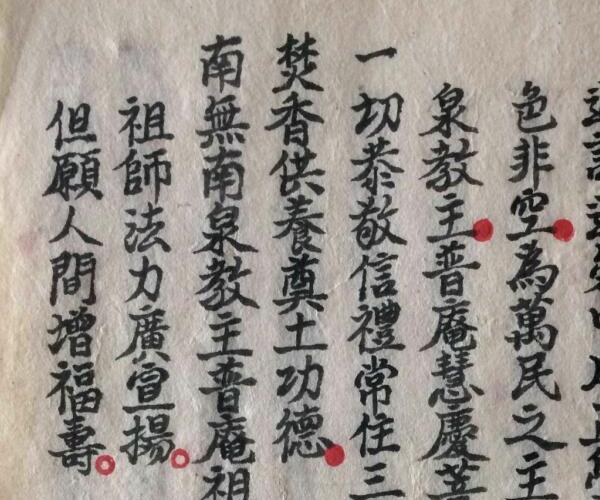 色非空為萬民之主
泉教主普庵慧慶
一切恭敬信禮常住三
焚香供養奠土功德
南無南泉教主普庵祖
祖師法力廣宣揚
但願人間增福壽